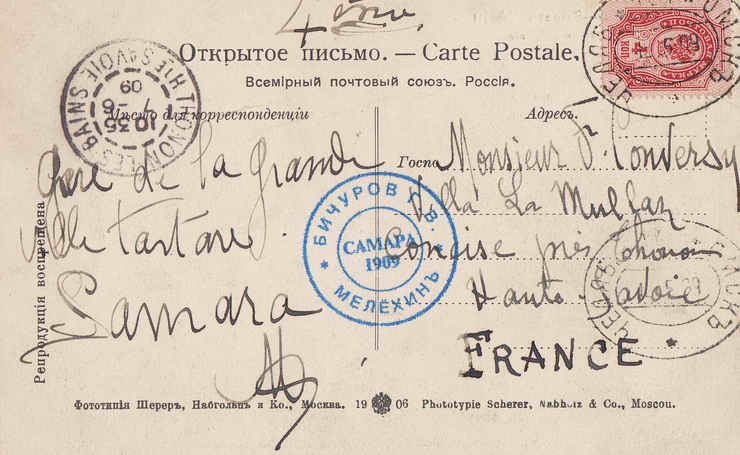 4ème
Открытое письмо. — Carte Postale,
Всемірный почтовый союзъ. Россія.
Мѣсто для корреспонденціи
Адресъ.
THONON-LES-BAINS
HTE SAVOIE
10 35
7 - 6
09
Gare de la grande
ville tartare.
Samara
Госпо
Monsieur F. Conversy
Villa La Mullaz
Concise près Thonon
Haute Savoie
FRANCE
БИЧУРОВ Г. В.
САМАРА
1909
МЕЛЕХИНЪ
Репродукція воспрещена
Фототипія Шереръ, Набгольцъ и Ко., Москва. 19 06 Phototypie Scherer, Nabholz & Co., Moscou.